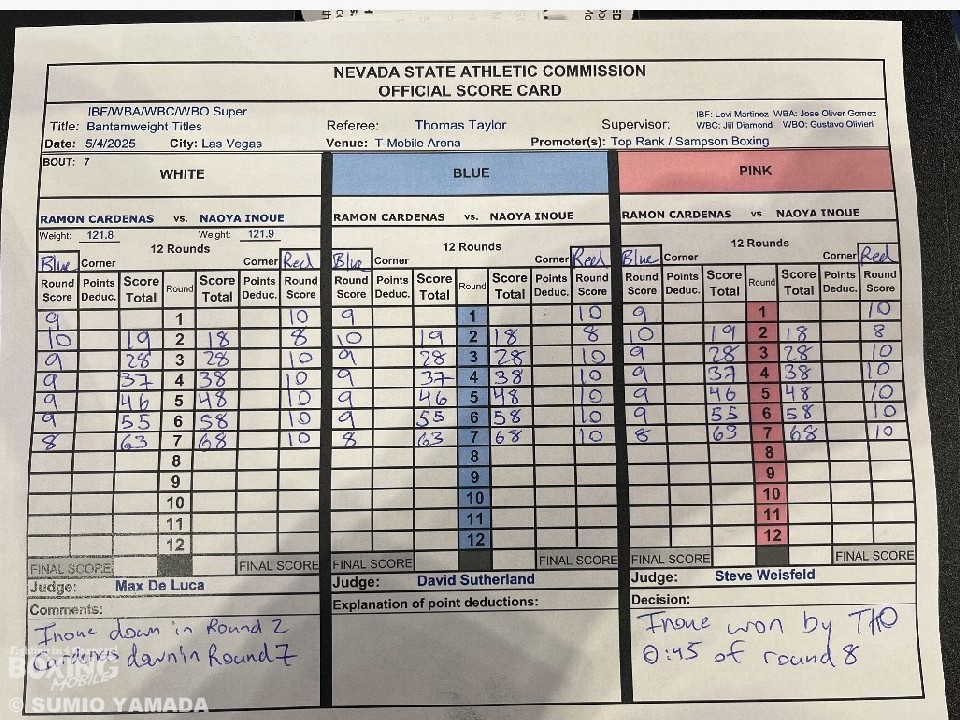 NEVADA STATE ATHLETIC COMMISSION
OFFICIAL SCORE CARD
IBF/WBA/WBC/WBO Super
Title: Bantamweight Titles Referee: Thomas Taylor Supervisor: IBF: Levi Martinez WBA: Jose Oliver Gomez
WBC: Jill Diamond WBO: Gustavo Olivieri
Date: 5/4/2025 City: Las Vegas Venue: T-Mobile Arena Promoter(s): Top Rank / Sampson Boxing
BOUT: 7
WHITE BLUE PINK
RAMON CARDENAS vs. NAOYA INOUE RAMON CARDENAS vs. NAOYA INOUE RAMON CARDENAS vs NAOYA INOUE
Weight: 121.8 Weight: 121.9
12 Rounds 12 Rounds 12 Rounds
Blue Corner Corner Red Blue Corner Corner Red Blue Corner Corner Red
Round Score Points Deduc. Score Total Round Score Total Points Deduc. Round Score Round Score Points Deduc. Score Total Round Score Total Points Deduc. Round Score Round Score Points Deduc. Score Total Round Score Total Points Deduc. Round Score
9 1 10 9 1 10 9 1 10
10 19 2 18 8 10 19 2 18 8 10 19 2 18 8
9 28 3 28 10 9 28 3 28 10 9 28 3 28 10
9 37 4 38 10 9 37 4 38 10 9 37 4 38 10
9 46 5 48 10 9 46 5 48 10 9 46 5 48 10
9 55 6 58 10 9 55 6 58 10 9 55 6 58 10
8 63 7 68 10 8 63 7 68 10 8 63 7 68 10
8 8 8
9 9 9
10 10 10
11 11 11
12 12 12
FINAL SCORE FINAL SCORE FINAL SCORE FINAL SCORE FINAL SCORE FINAL SCORE
Judge: Max De Luca Judge: David Sutherland Judge: Steve Weisfeld
Comments: Explanation of point deductions: Decision:
Inoue down in Round 2
Cardenas down in Round 7
Inoue won by TKO
0:45 of round 8
BOXING
MOBILE
© SUMIO YAMADA